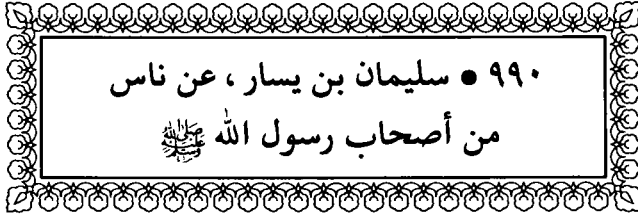 ٩٩٠ • سليمان بن يسار ، عن ناس
من أصحاب رسول الله ﷺ